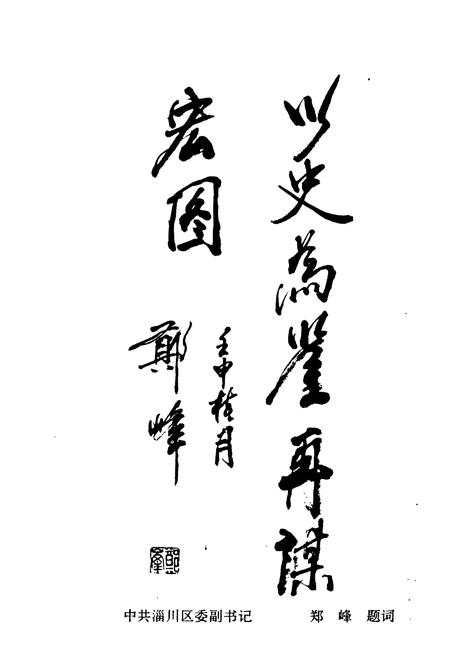 以史為鉴再謀
宏图
壬申桂月
鄭峰
鄭峰
中共淄川区委副书记 郑 峰 题词